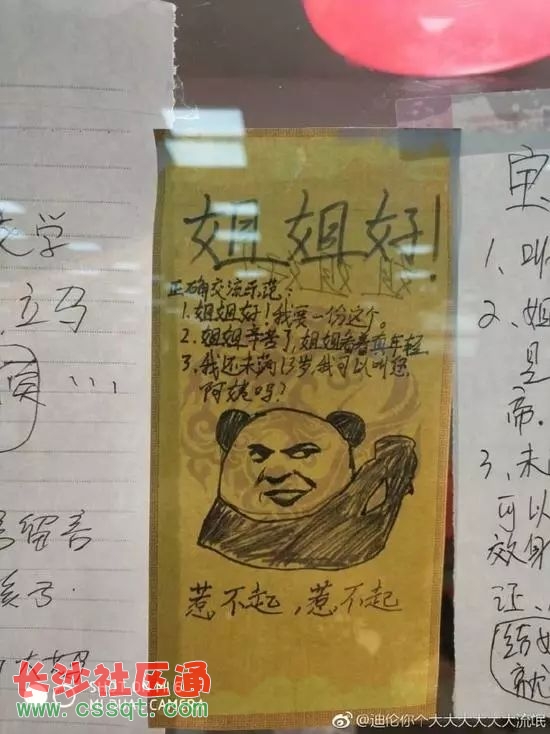 文学
立马
留言
姐姐好!
正确交流示范:
1.姐姐好!我要一份这个。
2.姐姐辛苦了,姐姐看着真年轻
3.我还未满13岁,我可以叫您
阿姨吗?
惹不起,惹不起
1、叫
2、姐
是
帝.
3、未
可以
效身
证、
就
长沙社区通
www.cssqt.com
@迪伦你个大大大大大大流氓